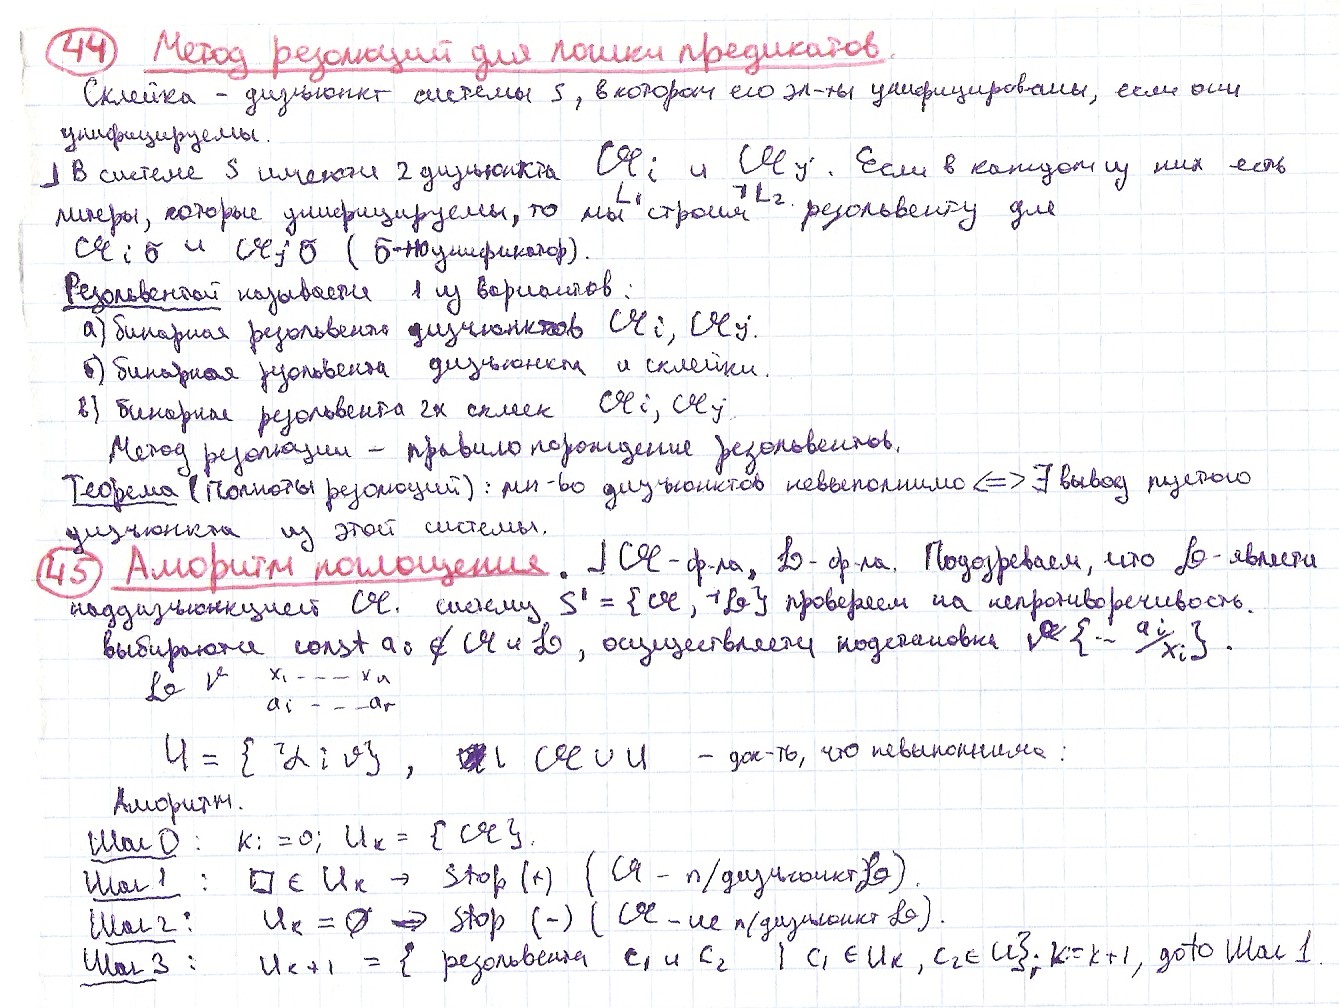 44 Метод резолюций для логики предикатов.
Склейка – дизъюнкт системы S, в котором его эл-ты унифицированы, если они
унифицируемы.
⅃ В системе S имеются 2 дизъюнкта 𝒜i и 𝒜j. Если в каждом из них есть
литеры, которые унифицируемы, то мы строим резольвенту для
L₁ ¬L₂
𝒜iσ и 𝒜jσ (σ-но унификатор).
Резольвентой называется 1 из вариантов:
а) бинарная резольвента дизъюнктов 𝒜i, 𝒜j.
б) бинарная резольвента дизъюнкта и склейки.
в) бинарная резольвента 2х склеек 𝒜i, 𝒜j
Метод резолюции – правило порождение резольвентов.
Теорема (Полноты резолюций): мн-во дизъюнктов невыполнимо <=> ∃ вывод пустого
дизъюнкта из этой системы.
45 Алгоритм поглощения. ⅃ 𝒜-ф-ла, ℒ-ф-ла. Подозреваем, что ℒ-является
наддизъюнкцией 𝒜. систему S' = {𝒜, ¬ℒ} проверяем на непротиворечивость.
выбираются const a: ∉ 𝒜 и ℒ, осуществляется подстановка {... ai/xi}.
ℒ ν x₁ - - - - xn
ai - - - ar
U = { ℒiν}, 𝒜 ∪ U – док-ть, что невыполнима:
Алгоритм.
Шаг 0: k:=0; Uk = {𝒜}.
Шаг 1: □ ∈ Uk → Stop (+) (𝒜 – п/дизъюнкт ℒ).
Шаг 2: Uk = ∅ → Stop (-) (𝒜 – не п/дизъюнкт ℒ).
Шаг 3: Uk+1 = { резольвента c₁ и c₂ | c₁ ∈ Uk, c₂ ∈ U}; k=k+1, goto Шаг 1.